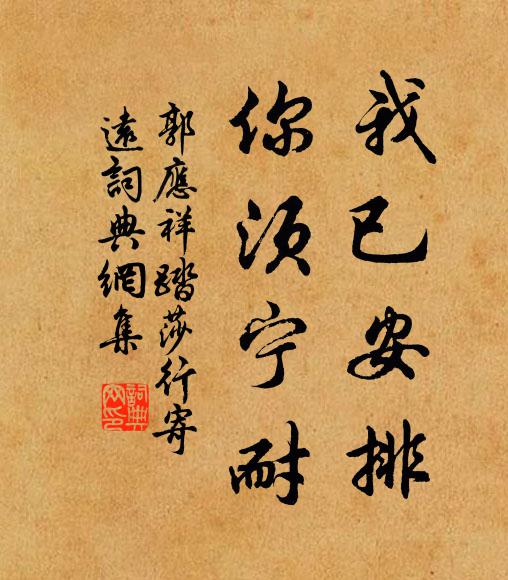 我已安排
你须宁耐
郭應祥踏莎行寄
遠詞典網集
詞典